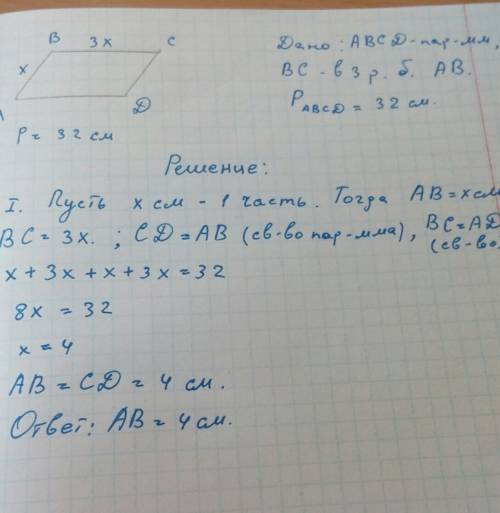 B 3x C
x
A
D
P = 32 см
Дано: ABCD-пар-мм,
BC - в 3 р. б. AB.
PABCD = 32 см.
Решение:
I. Пусть x см - 1 часть. Тогда AB = x см
BC = 3x. ; CD = AB (св-во пар-мма), BC = AD
(св-во
x + 3x + x + 3x = 32
8x = 32
x = 4
AB = CD = 4 см.
Ответ: AB = 4 см.